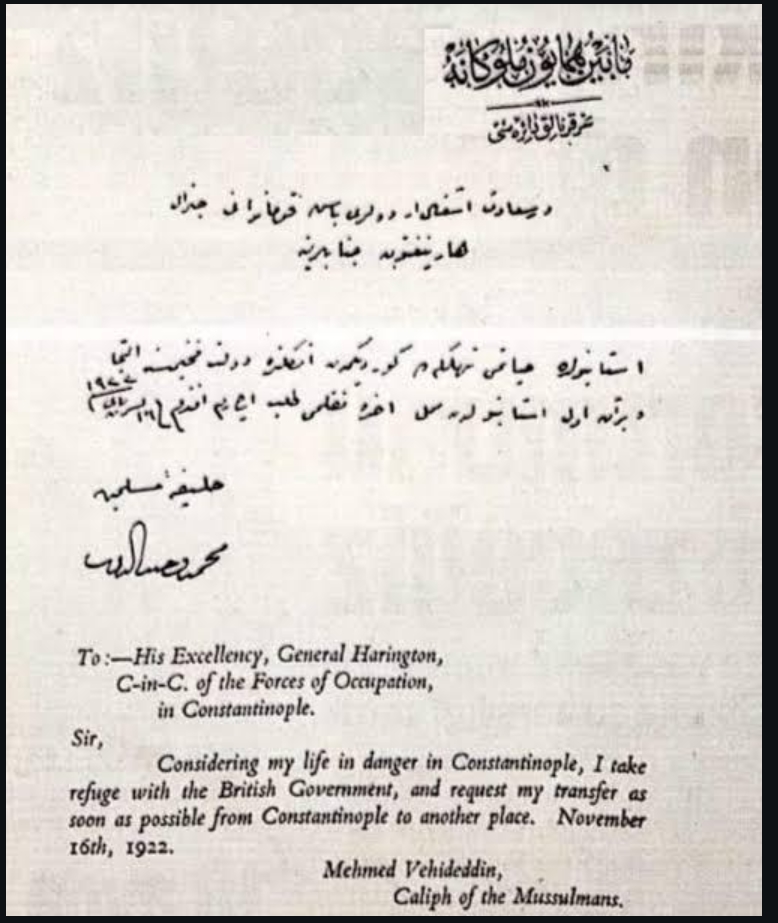 مابین همایون ملوکانه
سرقرنالق دائره سی
درسعادت اشغال اردولری باش قوماندانی جنرال
هارینغتون جنابلرینه
استانبولده حیاتمی تهلکه ده گوردیکمدن انکلتره دولت فخیمه سنه التجا
و بر آن اول استانبولدن محل آخره نقلمی طلب ایدرم افندم ١٦ تشرین ثانی ١٩٢٢
خلیفهٔ مسلمین
محمد وحیدالدین
To:—His Excellency, General Harington,
C-in-C. of the Forces of Occupation,
in Constantinople.
Sir,
Considering my life in danger in Constantinople, I take
refuge with the British Government, and request my transfer as
soon as possible from Constantinople to another place. November
16th, 1922.
Mehmed Vehideddin,
Caliph of the Mussulmans.